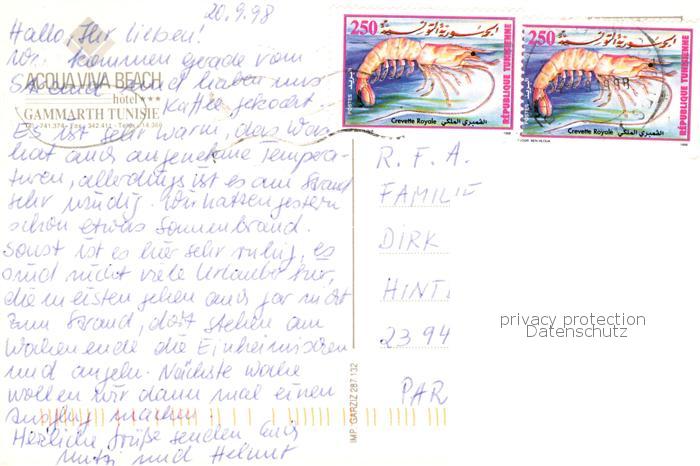 20.9.98
Hallo, Ihr lieben!
Wir kommen gerade vom
Strand und haben uns
Kaffee gekocht.
Es ist sehr warm, das Was-
hat auch angenehme Tempera-
turen, allerdings ist es am Strand
sehr windig. Wir hatten gestern
schon etwas Sonnenbrand.
Sonst ist es hier sehr ruhig, es
sind nicht viele Urlauber hier,
die meisten gehen auch gar nicht
zum Strand, dort stehen am
Wochenende die Einheimischen
und angeln. Nächste Woche
wollen wir dann mal einen
Ausflug machen.
Herzliche Grüße senden Euch
Mutti und Helmut
ACQUA VIVA BEACH
hotel ★★★
GAMMARTH TUNISIE
IMP. GARZIZ 287 132
250
الجمهورية التونسية
RÉPUBLIQUE TUNISIENNE
بريد
POSTES
Crevette Royale القمبري الملكي
1998
250
الجمهورية التونسية
RÉPUBLIQUE TUNISIENNE
Crevette Royale القمبري الملكي
1998
R.F.A.
FAMILIE
DIRK
HINT
2394
PAR
privacy protection
Datenschutz